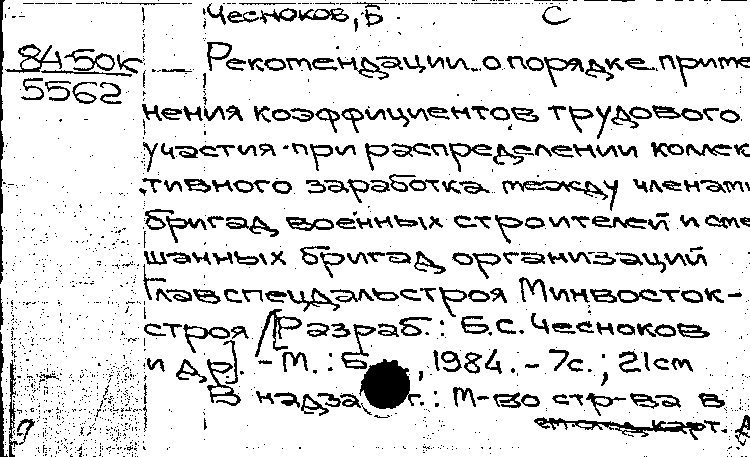 Чесноков, Б. С
84-50к
5562
Рекомендации о порядке приме
нения коэффициентов трудового
участия при распределении коллек
тивного заработка между членами
бригад военных строителей и сме
шанных бригад организаций
Главспецдальстроя Минвосток-
строя / [Разраб.: Б.С. Чесноков
и др.]. - М.: Б. , 1984. - 7с.; 21см
В надза г.: М-во стр-ва в
карт.
9